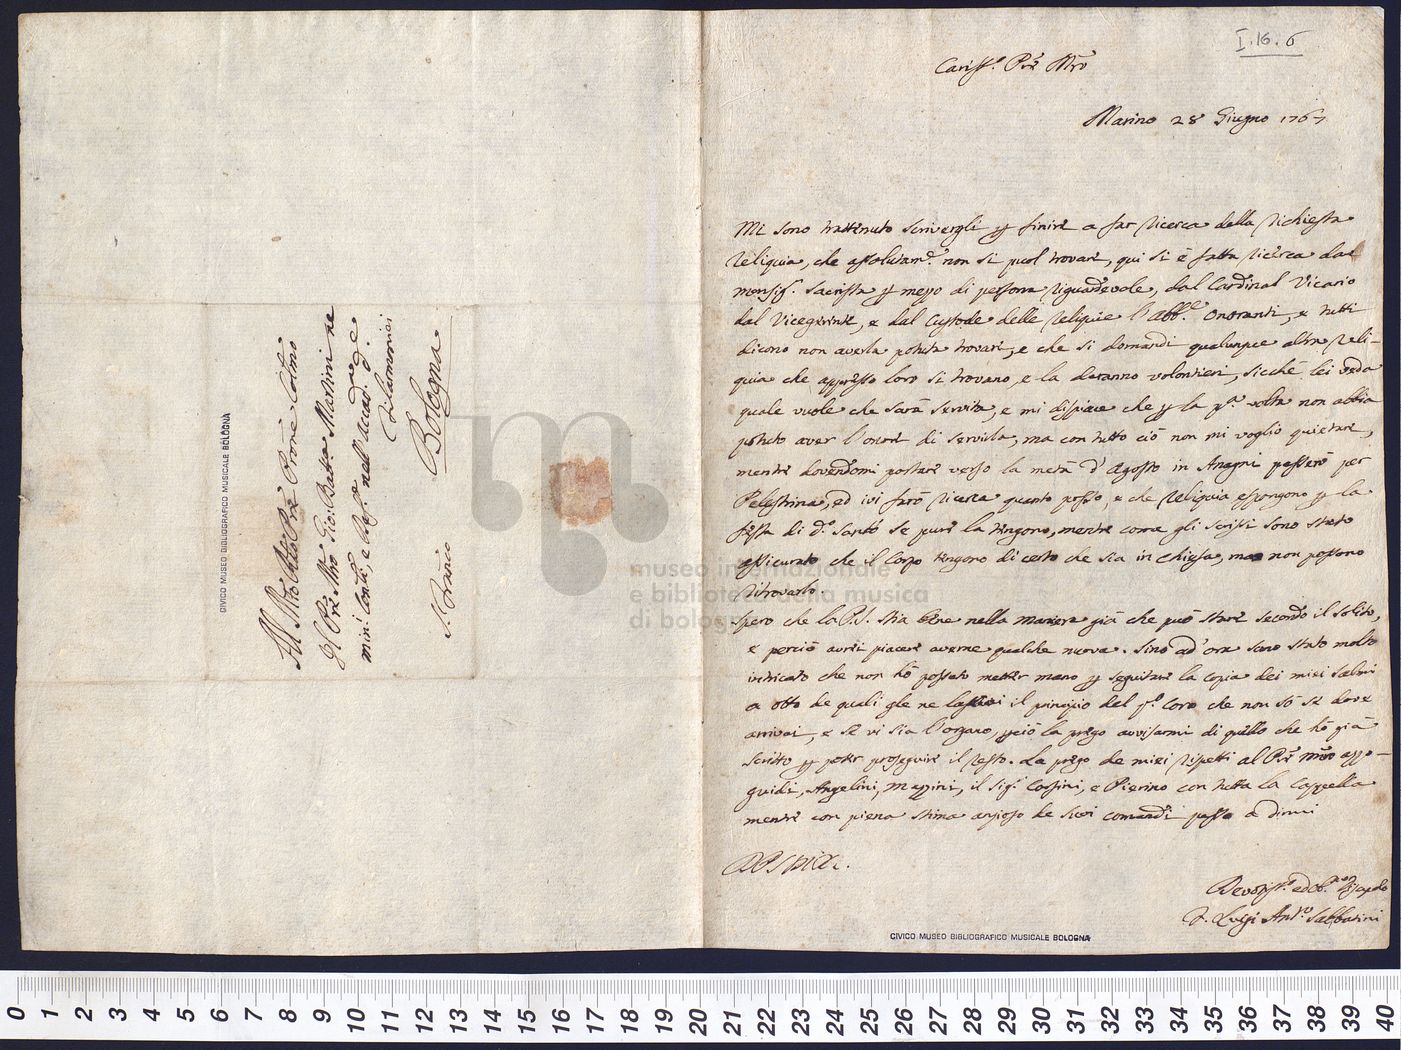 I.16.6
Cariss.º Pre Mro
Marino 28 Giugno 1767
Mi sono trattenuto scrivergli p finire a far ricerca della richiesta
reliquia, che assolutam.e non si puol trovare, qui si è fatta ricerca dal
monsig.r Sacrista p mezzo di persona riguardevole, dal Cardinal Vicario
dal Vicegerente, e dal Custode delle reliquie l'abb.e Onoranti, e tutti
dicono non averla potuta trovare, e che si domandi qualunque altra reli-
quia che appresso loro si trovano, e la daranno volontieri, sicché lei veda
quale vuole che sarà servita, e mi dispiace che p la p.a volta non abbia
potuto aver l'onore di servila, ma con tutto ciò non mi voglio quietare,
mentre dovendomi portare verso la metà d'Agosto in Anagni passerò per
Pelestrina, ed ivi farò ricerca quanto posso, e che reliquia espongono p la
festa di d.º Santo se pure la tengono, mentre come gli scrissi sono stato
assicurato che il Corpo tengono di certo che sia in Chiesa, ma non possono
ritrovarlo.
Spero che la P.S. stia bene nella maniera già che può stare secondo il solito,
e perciò avrei piacere averne qualche nuova. Sino ad'ora sono stato molto
intricato che non hò possuto metter mano p seguitare la copia dei miei salmi
a otto de quali gle ne lasciai il principio del p.º Coro che non sò se dove
arrivai, e se vi sia l'organo, pciò la prego avvisarmi di quello che hò già
scritto p poter proseguire il resto. La prego de miei rispetti al Pre Mro
guidi, Angelini, Mazzini, il Sig.r Cossini, e Pierino con tutta la Cappella
mentre con piena stima ansioso de suoi comandi passo a dirmi
Devotiss.º ed Ob.mo
F. Luigi Ant.º Sabbatini
CIVICO MUSEO BIBLIOGRAFICO MUSICALE BOLOGNA
Al M.to Rdo Pre Prone Colmo
Il Pre Mro Gio: Batta Martini ne
min: Conti, e nell'Accad. de
Filarmonici
S. Franco Bologna
CIVICO MUSEO BIBLIOGRAFICO MUSICALE BOLOGNA
museo internazionale
e biblioteca della musica
di bologna
0 1 2 3 4 5 6 7 8 9 10 11 12 13 14 15 16 17 18 19 20 21 22 23 24 25 26 27 28 29 30 31 32 33 34 35 36 37 38 39 40